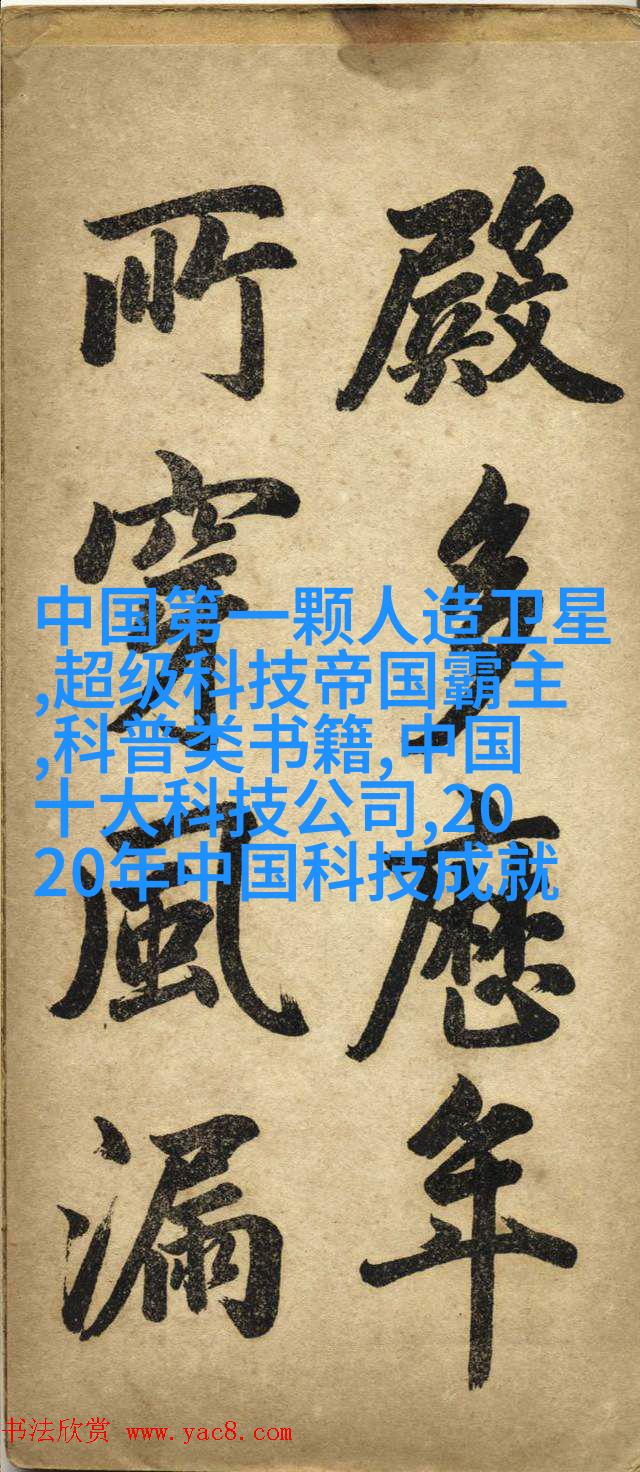 殿多歷年
所穿風漏
中国第一颗人造卫星
,超级科技帝国霸主
,科普类书籍,中国
十大科技公司,20
20年中国科技成就
书法欣赏 www.yac8.com